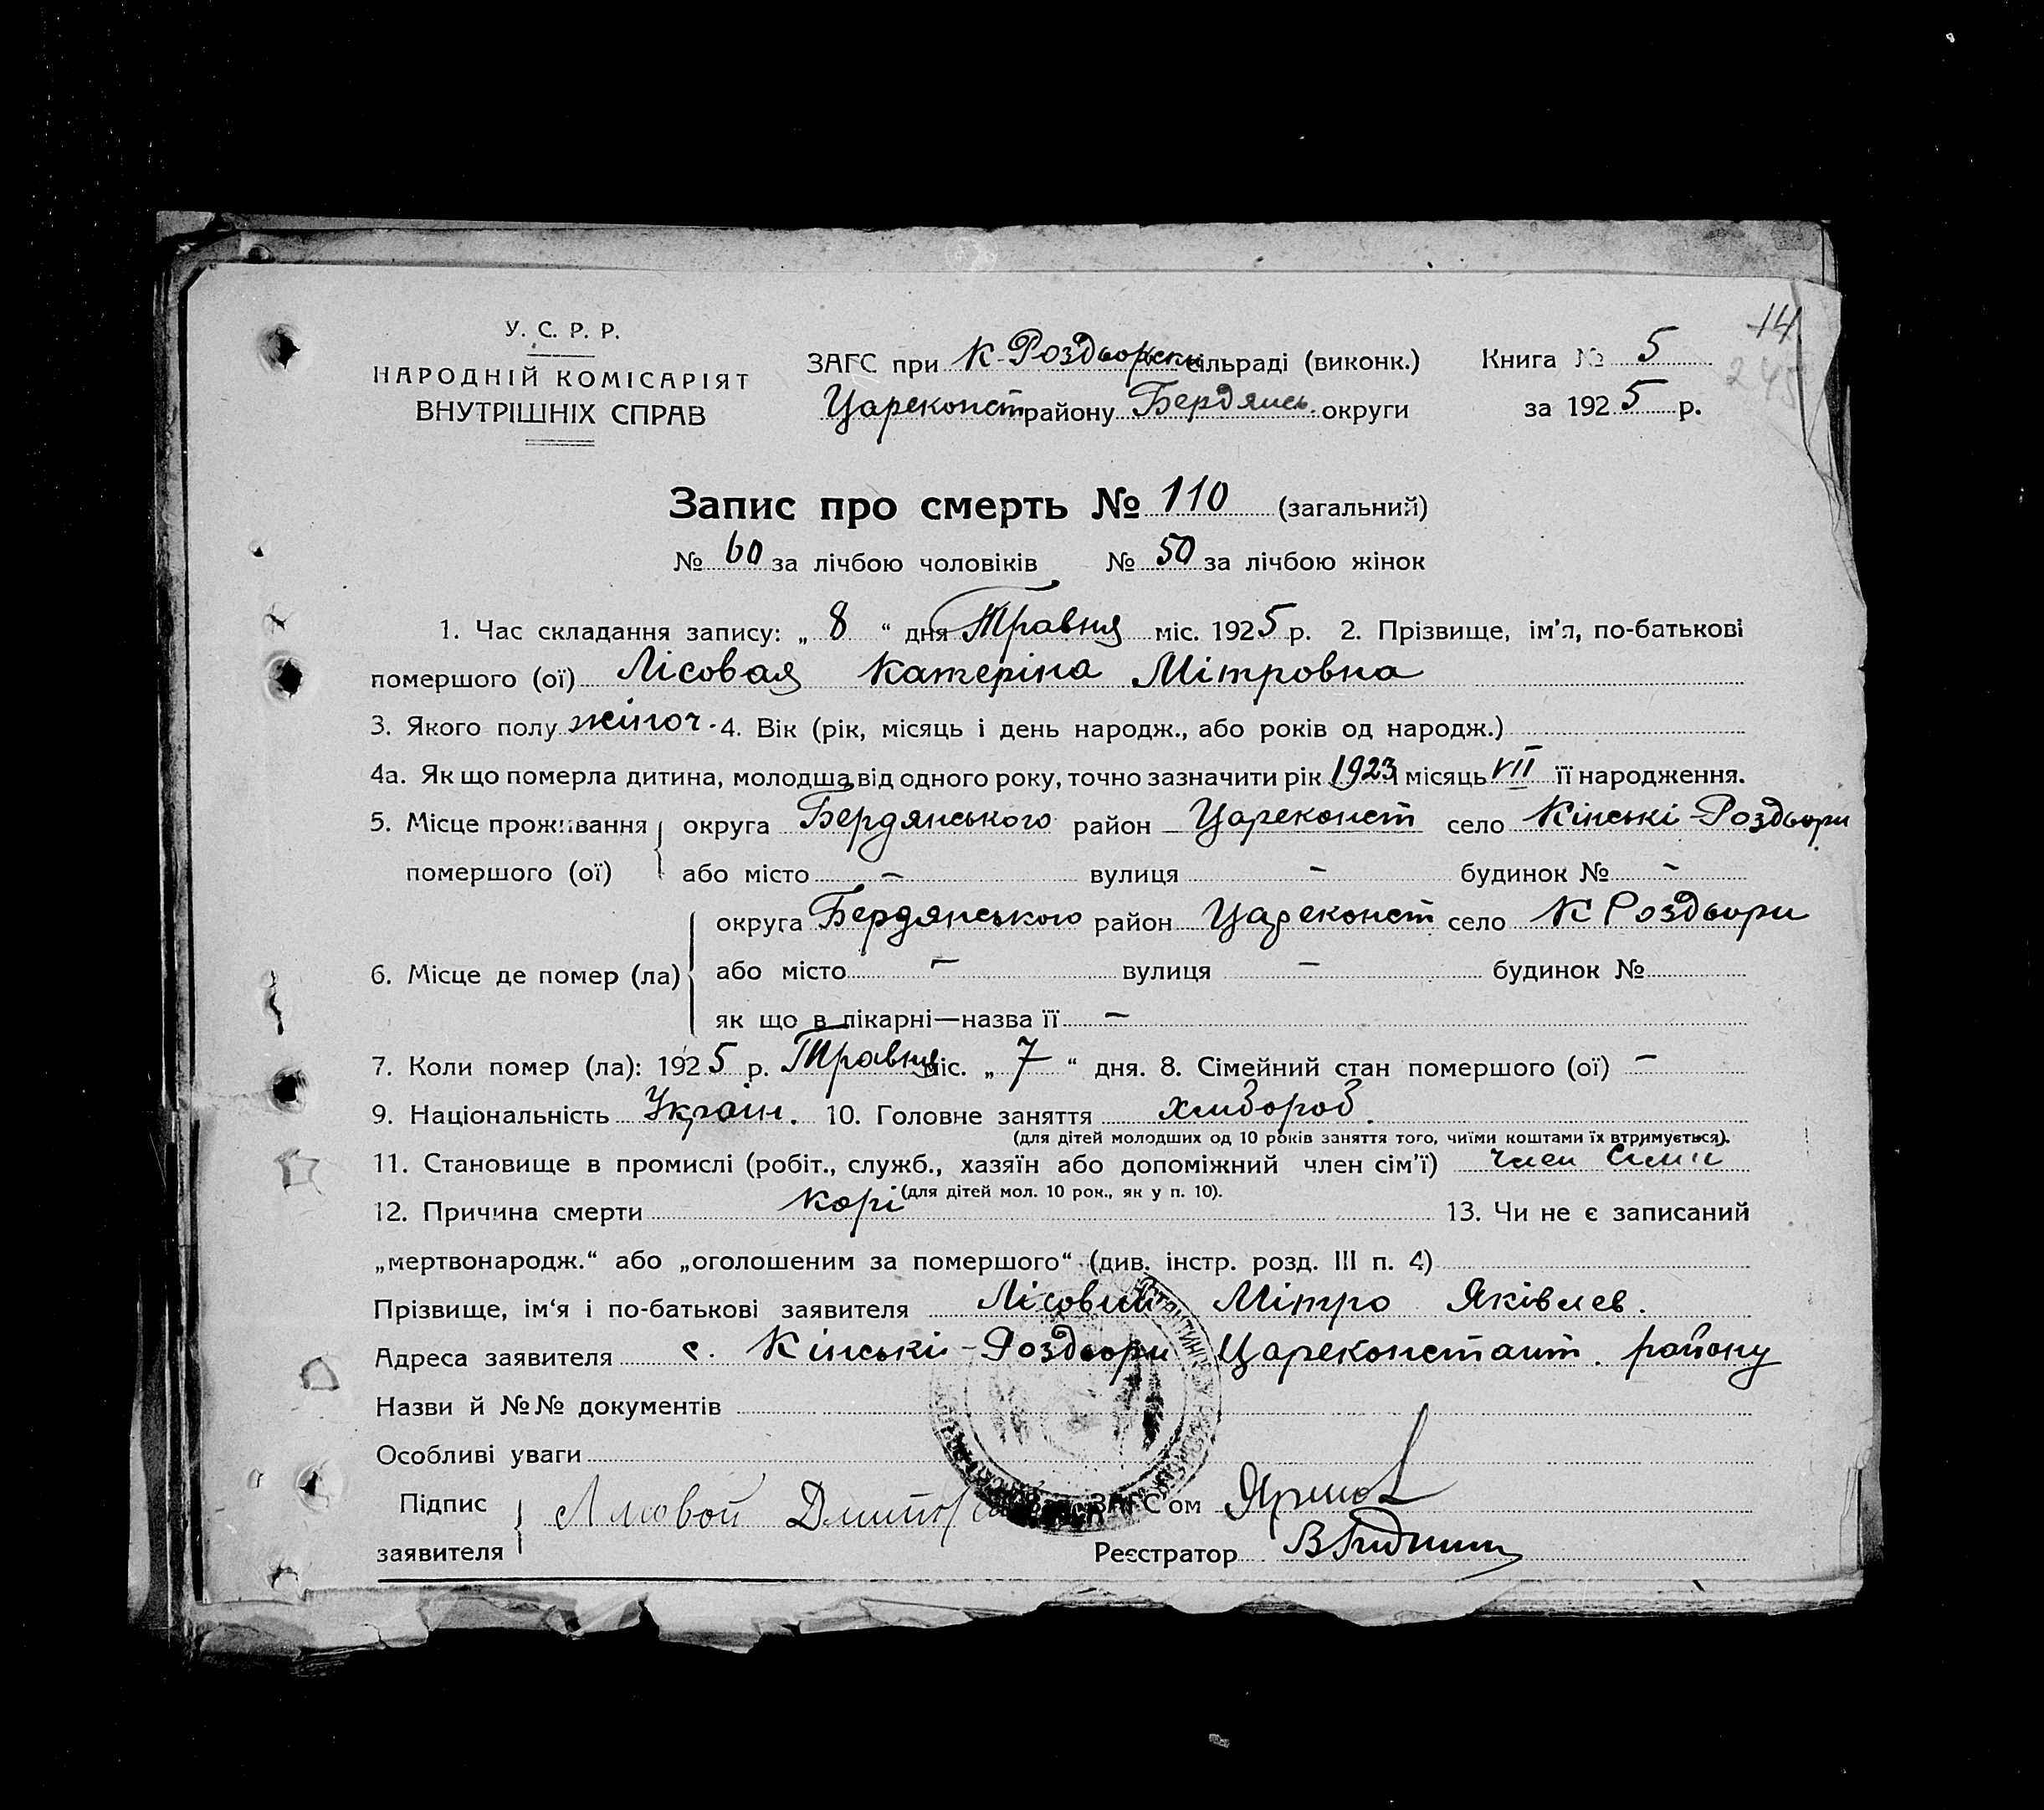 14
245
У. С. Р. Р.
НАРОДНІЙ КОМІСАРІЯТ
ВНУТРІШНІХ СПРАВ
ЗАГС при К-Роздворськ сільраді (виконк.)
Цареконст району Бердянсь. округи
Книга № 5
за 1925 р.
Запис про смерть № 110 (загальний)
№ 60 за лічбою чоловіків № 50 за лічбою жінок
1. Час складання запису: „ 8 “ дня Травня міс. 1925 р. 2. Прізвище, ім'я, по-батькові
помершого (ої) Лісовая Катеріна Мітровна
3. Якого полу жіноч. 4. Вік (рік, місяць і день народж., або років од народж.)
4а. Як що померла дитина, молодша від одного року, точно зазначити рік 1923 і місяць VII її народження.
5. Місце проживання округа Бердянського район Цареконст село Кінські-Роздори
помершого (ої) або місто – вулиця – будинок № –
округа Бердянського район Цареконст село К Роздори
6. Місце де помер (ла) або місто – вулиця – будинок №
як що в лікарні—назва її –
7. Коли помер (ла): 1925 р. Травня міс. „ 7 “ дня. 8. Сімейний стан помершого (ої) –
9. Національність Україн. 10. Головне заняття хлібороб.
(для дітей молодших од 10 років заняття того, чиїми коштами їх втримується).
11. Становище в промислі (робіт., служб., хазяїн або допоміжний член сім'ї) член сімї
(для дітей мол. 10 рок., як у п. 10).
12. Причина смерти корі 13. Чи не є записаний
„мертвонародж.“ або „оголошеним за помершого“ (див. інстр. розд. III п. 4)
Прізвище, ім‘я і по-батькові заявителя Лісовий Мітро Яківлев.
Адреса заявителя с. Кінські-Роздори Цареконстант. району
Назви й №№ документів
Особливі уваги
Підпис
заявителя
Лисовой Дмитр
ЗАГС'ом
Реєстратор